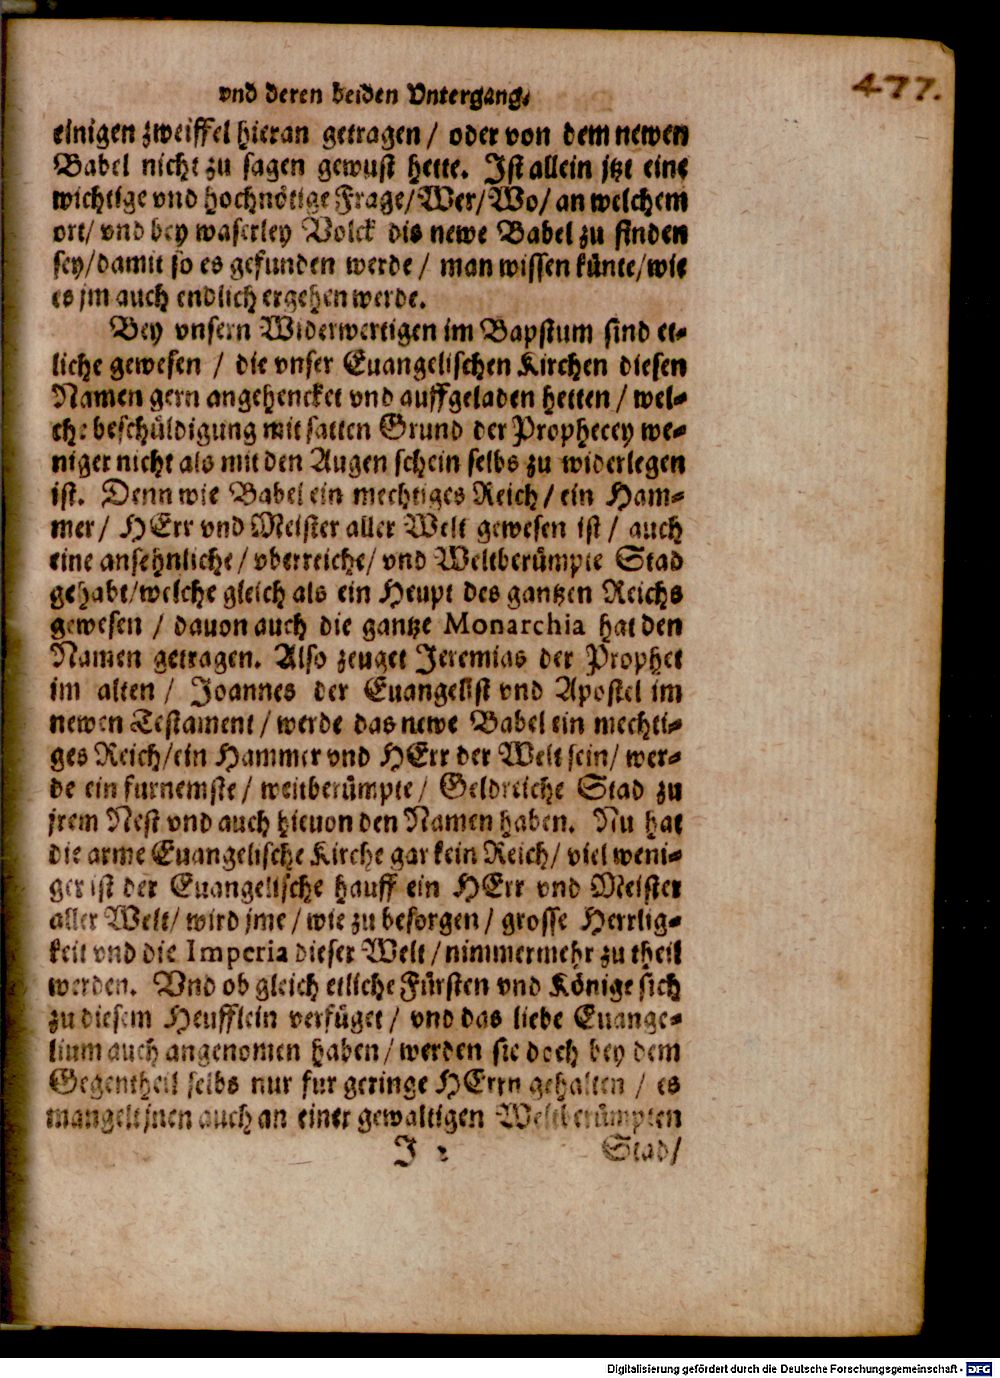 vnd deren beiden Vntergang.
477.
einigen zweiffel hieran getragen / oder von dem newen
Babel nicht zu sagen gewust hette. Ist allein jtzt eine
wichtige vnd hochnötige Frage/Wer/Wo/ an welchem
ort/ vnd bey waserley Volck dis newe Babel zu finden
sey/damit so es gefunden werde / man wissen künte/wie
es jm auch endlich ergehen werde.
Bey vnsern Widerwertigen im Bapstum sind et-
liche gewesen / die vnser Euangelischen Kirchen diesen
Namen gern angehencket vnd auffgeladen hetten / wel-
che beschüldigung mit satten Grund der Prophecey we-
niger nicht als mit den Augen schein selbs zu widerlegen
ist. Denn wie Babel ein mechtiges Reich / ein Ham-
mer / HErr vnd Meister aller Welt gewesen ist / auch
eine ansehnliche / vberreiche/ vnd Weltberümpte Stad
gehabt/welche gleich als ein Heupt des gantzen Reichs
gewesen / dauon auch die gantze Monarchia hat den
Namen getragen. Also zeuget Jeremias der Prophet
im alten / Joannes der Euangelist vnd Apostel im
newen Testament / werde das newe Babel ein mechti-
ges Reich/ein Hammer vnd HErr der Welt sein/ wer-
de ein furnemste / weitberümpte / Geldreiche Stad zu
jrem Nest vnd auch hieuon den Namen haben. Nu hat
die arme Euangelische Kirche gar kein Reich/ viel weni-
ger ist der Euangelische hauff ein HErr vnd Meister
aller Welt/ wird jme / wie zu besorgen / grosse Herrlig-
keit vnd die Imperia dieser Welt / nimmermehr zu theil
werden. Vnd ob gleich etliche Fürsten vnd Könige sich
zu diesem Heufflein verfüget / vnd das liebe Euange-
lium auch angenomen haben / werden sie doch bey dem
Gegentheil selbs nur fur geringe HErrn gehalten / es
mangelt jnen auch an einer gewaltigen Weltberümpten
J 2 Stad/
Digitalisierung gefördert durch die Deutsche Forschungsgemeinschaft - DFG